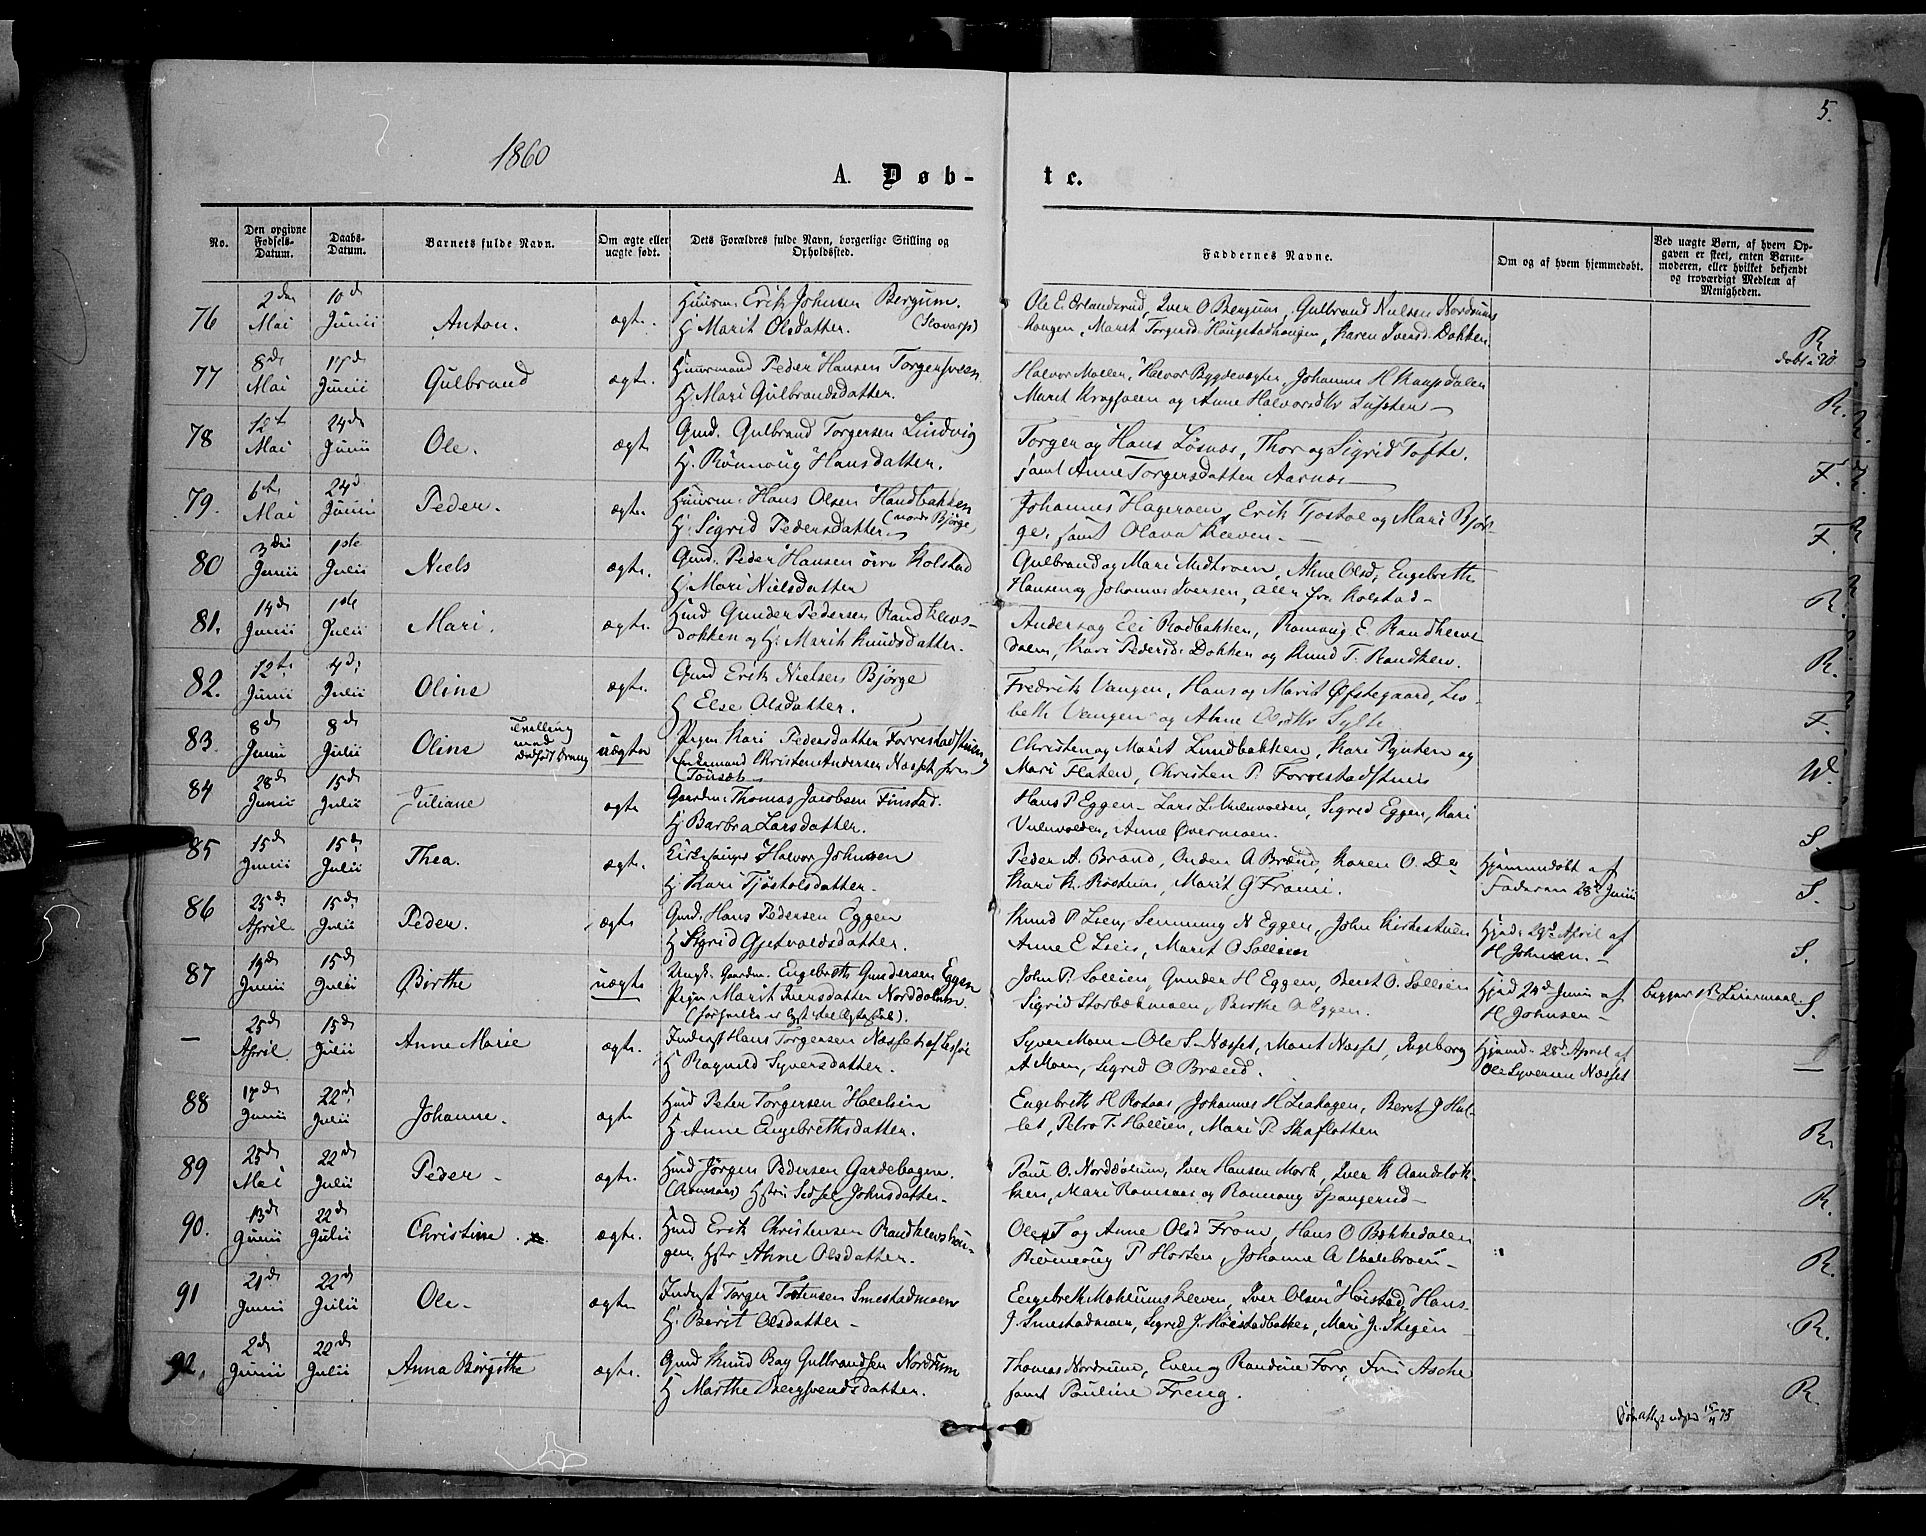 5.
1860
A. Døb- te.
No.
Den opgivne Fødsels-Datum.
Daabs-Datum.
Barnets fulde Navn.
Om ægte eller uægte født.
Dets Forældres fulde Navn, borgerlige Stilling og Opholdssted.
Faddernes Navne.
Om og af hvem hjemmedøbt.
Ved uægte Børn, af hvem Opgaven er skeet, enten Barnemoderen, eller hvilket bekjendt og troværdigt Medlem af Menigheden.
76 2den Mai 10d Junii Anton. ægte. Huusm: Erik Johnsen Bergum.
H. Marit Olsdatter.
Ole E. Orlanderud, Iver O Bergum, Gulbrand Nielsen Nordrums
haugen, Marit Torgersd. Haugstadhaugen, Karen Iversd. Dokken
R
77 8de Mai 17d Junii Gulbrand ægte. Huusmand Peder Hansen Torgersveen
H. Mari Gulbrandsdatter.
Halvor Mollen, Halvor Bygdevægter, Johanna H Kaasdalen
Marit Krogsveen og Anne Halvorsdtr
R.
78 12t Mai 24d Junii Ole. ægte Gmd. Gulbrand Torgersen Lindvig
H. Rønnoug Hansdatter.
Torger og Hans Løsnæs, Thor og Sigrid Tofte,
samt Anne Torgersdatter Aarnæs
F.
79. 6te Mai 24d Junii Peder. ægte. Huusm: Hans Olsen Haudbakken
H. Sigrid Pedersdatter (nordr Bjørge
Johannes Hageroen, Erik Tjostol og Mari Bjør-
ge, samt Olava Kleven.
F.
80 3die Junii 1ste Julii Niels ægte. Gmd. Peder Hansen øvre Kolstad
H. Mari Nielsdatter
Gulbrand og Mari Midtroen, Ahne Olsd, Engebreth
Hansen og Johannes Iversen, alle fra Kolstad
R.
81. 14d Junii 1ste Julii Mari. ægte. Hmd Gunder Pedersen Randklevs-
dokken og H. Marith Knudsdatter.
Anders og Eli Rodbakken, Rønnoug E. Randklevs
dalen, Kari Pedersd. Dokken og Knud T. Randklev.
R.
82. 12te Junii 4d Julii Oline ægte. Gmd Erik Nielsen Bjørge
H Else Olsdatter.
Fredrik Vangen, Hans og Marit Øfstegaard, Lis-
beth Vangen og Ahne Olsdtr Sylte
F.
83. 8d Junii 8d Julii Oline Tvilling med dødfødt Dreng uægte Pigen Kari Pedersdatter Forrestadstuen
Enkemand Christen Andersen Næsset fra
Christen og Marit Lundbakken, Kari Rynten og
Mari Flaten, Christen P. Forrestadstuen
W.
84 28d Junii 15d Julii Juliane ægte Gaardm: Thomas Jacobsen Finstad.
H Barbra Larsdatter.
Hans P Eggen Lars L Ulenvolden, Sigrid Eggen, Kari
Ulenvolden, Anne Øvermoen.
S.
85 15d Junii 15d Julii Thea. ægte. Kirkesanger Halvor Johnsen
H. Kari Tjøstolsdatter.
Peder A. Brænd, Onden A Brænd, Karen O. De
Kari K. Røstum, Marit G Frami.
Hjemmedøbt af
Faderen 28d Junii
S.
86 25d April 15d Julii Peder. ægte Gmd. Hans Pedersen Eggen
H Sigrid Gjetvoldsdatter.
Knud P. Lien, Semming N Eggen, John Kirkestuen
Anne E Lien, Marit O Sollien
Hjmd. 29d April af
H Johnsen.
S.
87 19d Junii 15d Julii Birthe uægte Ungk. Gaardm. Engebreth Gundersen Eggen
Pigen Marit Iversdatter Norddalum
John P. Sollien, Gunder H Eggen, Beret O. Sollien
Sigrid Storbækmoen, Birthe O Eggen.
Hjmd 24d Junii af
H Johnsen
begges 1ste Leiermaal.
S.
— 25d April 15d Julii Anne Marie ægte. Inderst Hans Torgersen Næsset af Lesjø
H Ragnild Syversdatter.
Syver Moen Ole S. Næsset, Marit Næsset, Ingeborg
A Moen, Sigrid O Brænd.
Hjemd. 28d April af
Ole Syversen Næsset
—
88 17d Junii 22d Julii Johanne. ægte Hmd Peter Torgersen Hollien
H. Anne Engebrethsdatter.
Engebreth H Rolaas, Johannes H Liahagen, Beret J Hul-
let, Petro T. Hollien, Mari P. Skaflotten
R.
89 25d Mai 22d Julii Peder ægte. Hmd Jørgen Pedersen Gardehagen.
(Romsaas) Hstru Sidsel Johnsdatter
Poul O. Norddølum, Iver Hansen Mork, Iver K Aandslok-
ken, Mari Romsaas og Rønnoug Spangerud
R.
90. 13d Junii 22d Julii Christine ægte. Hmd Erik Christensen Randklevshau-
gen, Hstr Ahne Olsdatter.
Ole T og Anne Olsd From, Hans O Bakkedalen
Rønnoug P Horten, Johanne A Vadebroen
R.
91 21d Junii 22d Julii Ole. ægte Inderst Torger Tostensen Smestadmoen
H. Berit Olsdatter
Engebreth Mæhlumskleven, Iver Olsen Høistad, Hans
J. Smestadmoen, Sigrid J. Høistadbakken, Mari J. Stigen
R.
92. 2d Junii 22d Julii Anna Birgitte ægte. Gmd Knud Ray Gulbrandsen Nordrum
H Marthe Bergsvendsdatter.
Thomas Nordrum, Even og Randine Forr, Fru Asche
samt Pauline Freng.
R.